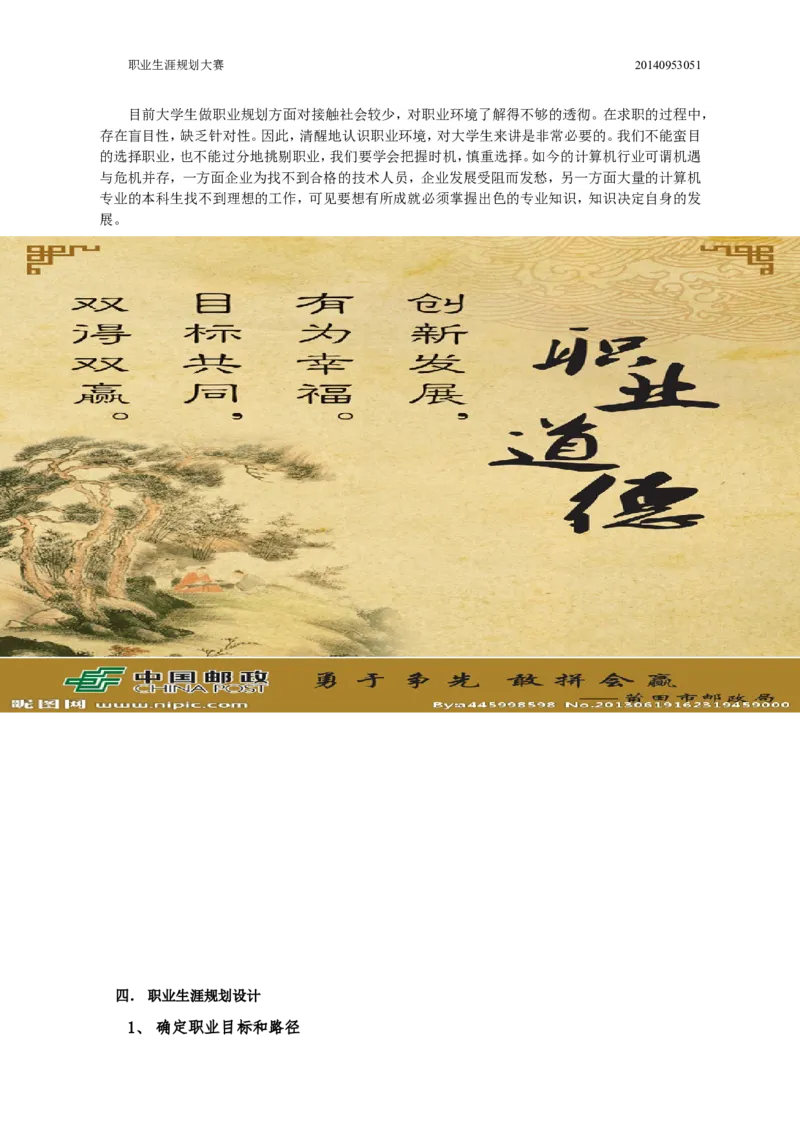 职业生涯规划大赛 20140953051
目前大学生做职业规划方面对接触社会较少，对职业环境了解得不够的透彻。在求职的过程中，
存在盲目性，缺乏针对性。因此，清醒地认识职业环境，对大学生来讲是非常必要的。我们不能蛮目
的选择职业，也不能过分地挑剔职业，我们要学会把握时机，慎重选择。如今的计算机行业可谓机遇
与危机并存，一方面企业为找不到合格的技术人员，企业发展受阻而发愁，另一方面大量的计算机
专业的本科生找不到理想的工作，可见要想有所成就必须掌握出色的专业知识，知识决定自身的发
展。
职业
道德
创新发展，
有为幸福。
目标共同，
双得双赢。
中国邮政
CHINA POST
勇于争先 敢拼会赢
——莆田市邮政局
昵图网 www.nipic.com
By:a445998598 No.20130619162319459000
四． 职业生涯规划设计
1、 确定职业目标和路径